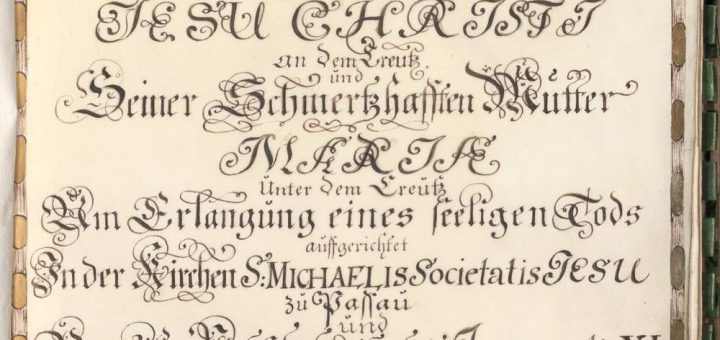 JESU CHRISTI
an dem Creutz
und
Seiner Schmertzhafften Mutter
MARIÆ
Unter dem Creutz
Um Erlangung eines seeligen Tods
auffgerichtet
In der Kirchen S: MICHAELIS Societatis JESU
zu Passau
und
XI